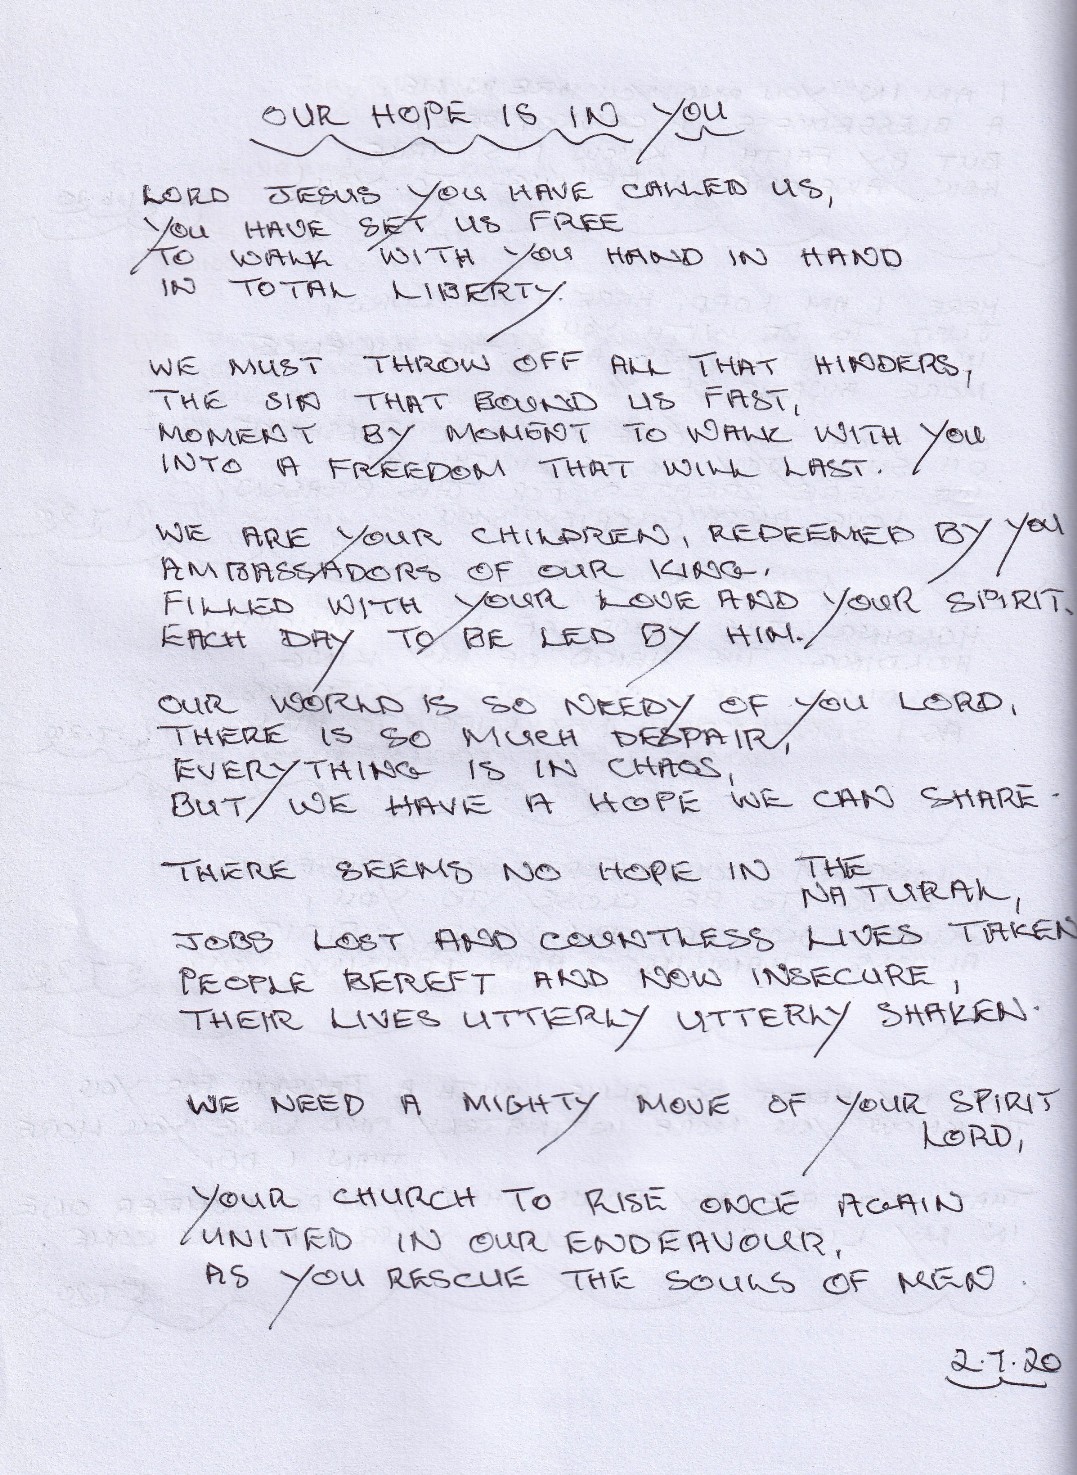 OUR HOPE IS IN YOU
LORD JESUS YOU HAVE CALLED US,
YOU HAVE SET US FREE
TO WALK WITH YOU HAND IN HAND
IN TOTAL LIBERTY.
WE MUST THROW OFF ALL THAT HINDERS,
THE SIN THAT BOUND US FAST,
MOMENT BY MOMENT TO WALK WITH YOU
INTO A FREEDOM THAT WILL LAST.
WE ARE YOUR CHILDREN, REDEEMED BY YOU
AMBASSADORS OF OUR KING.
FILLED WITH YOUR LOVE AND YOUR SPIRIT.
EACH DAY TO BE LED BY HIM.
OUR WORLD IS SO NEEDY OF YOU LORD,
THERE IS SO MUCH DESPAIR,
EVERYTHING IS IN CHAOS,
BUT WE HAVE A HOPE WE CAN SHARE.
THERE SEEMS NO HOPE IN THE
NATURAL,
JOBS LOST AND COUNTLESS LIVES TAKEN
PEOPLE BEREFT AND NOW INSECURE,
THEIR LIVES UTTERLY UTTERLY SHAKEN.
WE NEED A MIGHTY MOVE OF YOUR SPIRIT
LORD,
YOUR CHURCH TO RISE ONCE AGAIN
UNITED IN OUR ENDEAVOUR,
AS YOU RESCUE THE SOULS OF MEN.
2.7.20